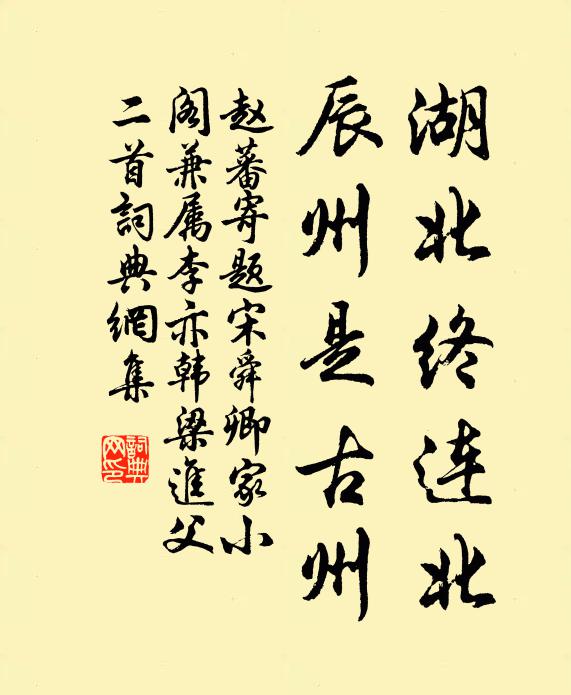 湖北终连北
辰州是古州
赵蕃寄题宋舜卿家小
阁兼属李亦韩梁进父
二首詞典網集
詞典网印